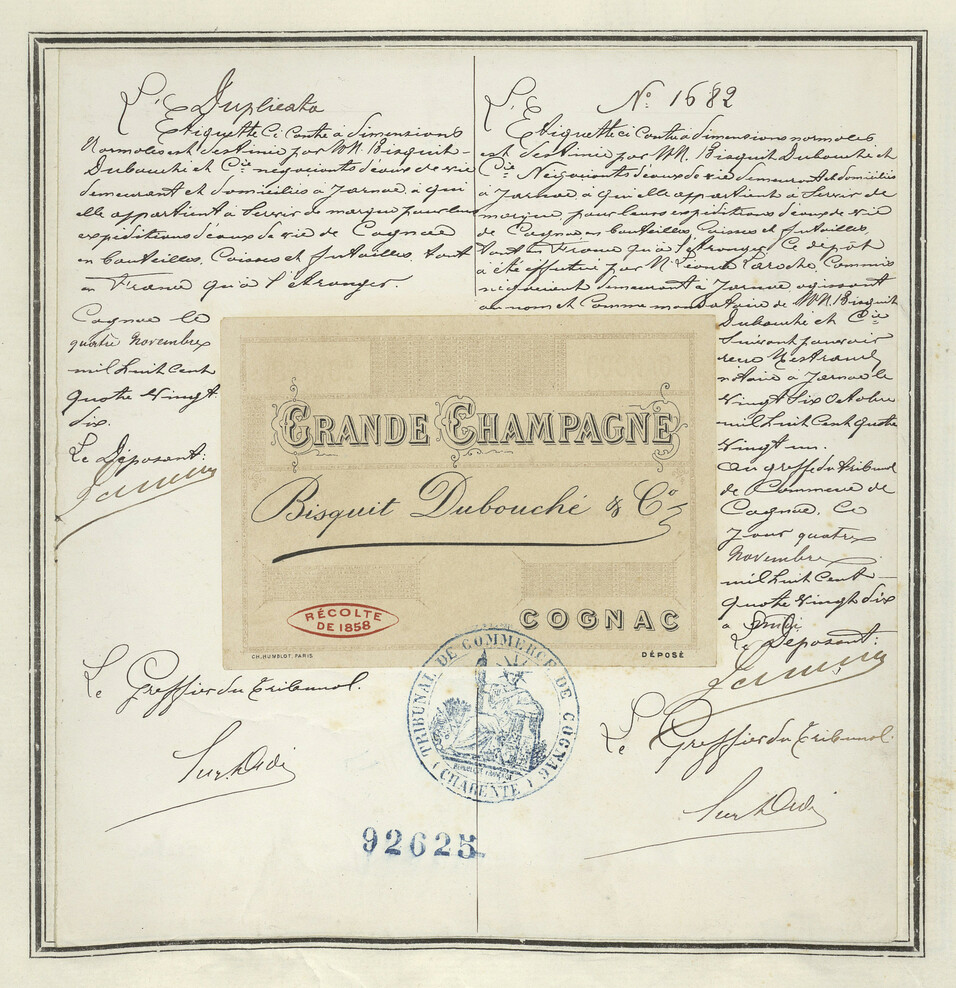 Duplicata
L'Etiquette ci contre à dimensions
normales est destinée par MM. Bisquit
Dubouché et Cie négociants d'eaux de vie
demeurant et domiciliés à Jarnac à qui
elle appartient à servir de marque pour leurs
expéditions d'eaux de vie de Cognac
en bouteilles, Caisses et futailles, tant
en France qu'à l'étranger.
Cognac le
quatre Novembre
mil huit cent
quatre vingt
six.
Le Déposant:
Le Greffier du Tribunal.
No 1682
L'Etiquette ci contre à dimensions normales
est destinée par MM. Bisquit Dubouché et
Cie Négociants d'eaux de vie demeurant et domiciliés
à Jarnac à qui elle appartient à servir de
marque pour leurs expéditions d'eaux de vie
de Cognac en bouteilles, Caisses et futailles,
tant en France qu'à l'étranger. Ce dépôt
a été effectué par M. Léonce Laroche, Commis
négociant demeurant à Jarnac agissant
au nom et comme mandataire de MM. Bisquit
Dubouché et Cie
suivant pouvoir
reçu Mestraud
notaire à Jarnac le
vingt six Octobre
mil huit cent quatre
vingt un.
Au greffe du tribunal
de Commerce de
Cognac, ce
jour quatre
Novembre
mil huit cent
quatre vingt six
à midi
Le Déposant:
Le Greffier du Tribunal.
GRANDE CHAMPAGNE
Bisquit Dubouché & Co
RÉCOLTE
DE 1858
COGNAC
CH. HUMBLOT. PARIS
DÉPOSÉ
TRIBUNAL DE COMMERCE DE COGNAC
(CHARENTE)
92625